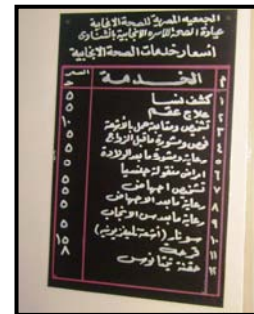 الجمعيه المصرية للصحة الإنجابية
عيادة الصحة الإنجابية بالشناوى
أسعار خدمات الصحة الإنجابية
م الخدمة السعر
١ كشف نسا ٥
٢ علاج عقم ٥
٣ تشخيص ومتابعة حمل بالأشعة ١٠
٤ فحص ومشورة ما قبل الزواج ٥
٥ رعاية ومشورة ما بعد الولادة ٥
٦ امراض منقولة جنسيا ٥
٧ تشخيص اجهاض ٥
٨ رعاية ما بعد الاجهاض ٥
٩ رعاية ما بعد سن الانجاب ٥
١٠ سونار (أشعة تليفزيونية)
١١ ١٥
١٢ حقنة تيتانوس ٨